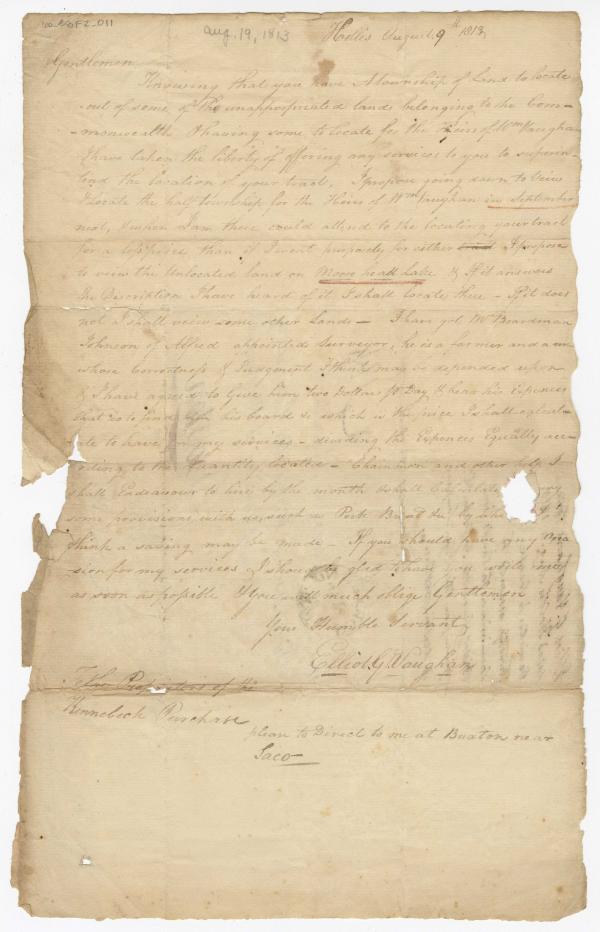 Aug. 19, 1813
Hollis August 9th 1813
Gentlemen
Knowing that you have A township of Land to locate
out of some of the unappropriated lands belonging to the Com-
-monwealth & having some to locate for the Heirs of Wm Vaughan
I have taken the liberty of offering my services to you to superin-
tend the location of your tract. I propose going down to View
& locate the half township for the Heirs of Wm Vaughan in September
next, & when I am there could attend to the locating your tract
for a less price than if I went purposely for either I propose
to view the Unlocated land on Moose head Lake & if it answers
the Discription I have heard of it I shall locate there - If it does
not I shall veiw some other Lands - I have got Mr Boardman
Johnson of Alfred appointed Surveyor, he is a farmer and a man
whose Correctness & Judgement I think may be depended upon
& I have agreed to Give him two Dollars Pr Day & bear his Expences
that is to find him his board & which is the price I shall calcul-
ate to have for my services - dividing the Expences Equally acc-
ording to the Quantity located - Chainmen and other help I
shall Endeavour to hire by the month & shall Calculate
some provisions with us, such as Pork Bread &c by which I
think a saving may be made - If you should have any occa
sion for my services I should be glad to have you write me
as soon as possible & you will much oblige Gentlemen
Your Humble Servant
Elliot G Vaughan
To the Proprietors of the
Kennebeck Purchase
please to Direct to me at Buxton near
Saco